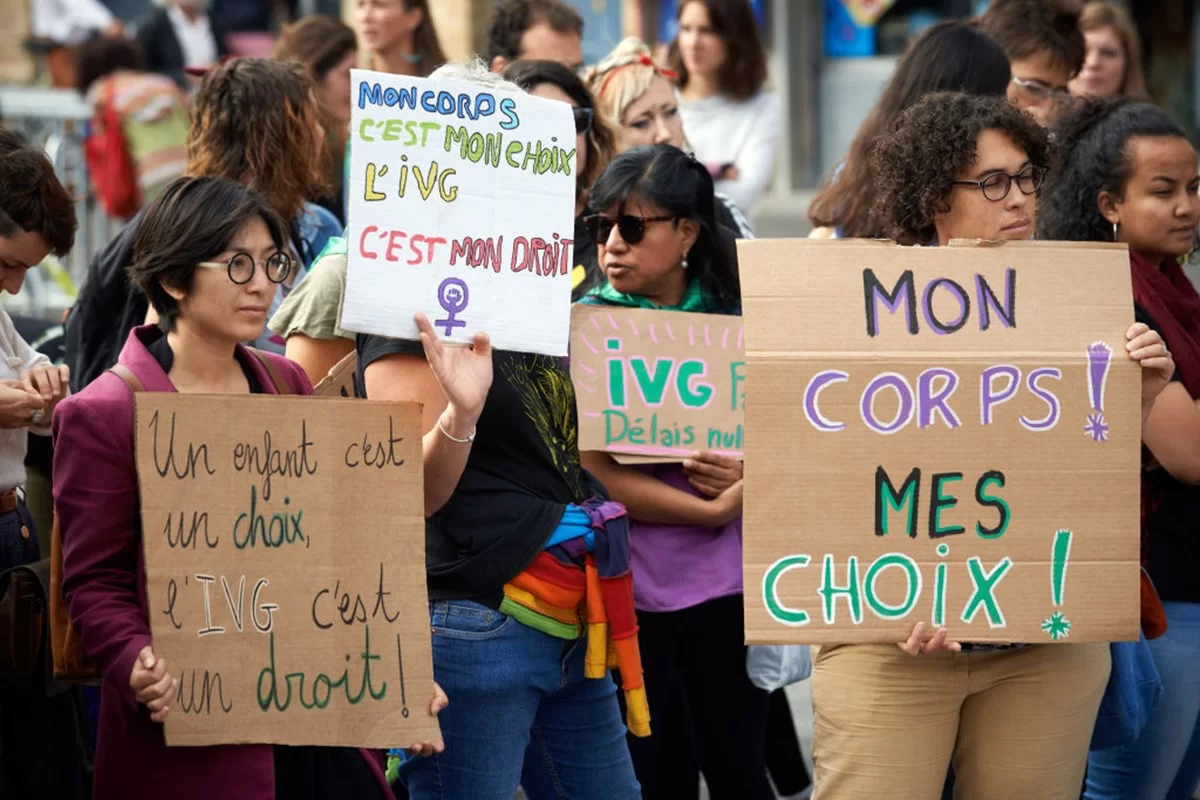 MON CORPS
C'EST MON CHOIX
L'iVG
C'EST MON DROIT
Un enfant c'est
un choix,
l'IVG c'est
un droit!
iVG
Délais
MON
CORPS!
MES
CHOiX!